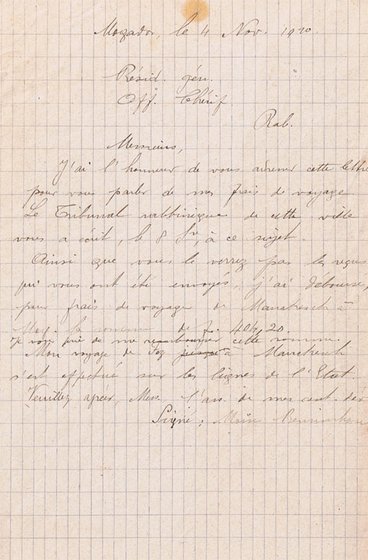 Mogador, le 4 Nov. 1920
Résid. gén.
Off. Chérif
Rab.
Messieurs,
J'ai l'honneur de vous adresser cette lettre
pour vous parler de mes frais de voyage.
Le Tribunal rabbinique de cette ville
vous a écrit, le 8 à ce sujet.
Ainsi que vous le verrez par les reçus
qui vous ont été envoyés, j'ai déboursé,
pour frais de voyage de Marakech à
Mog. la somme de f. 404,20
Je vous prie de me rembourser cette somme.
Mon voyage de Fez jusqu'à Marakech
s'est effectué sur les lignes de l'Etat.
Veuillez agréer, Mess. l'ass. de mes sent. dés
Signé: Moïse